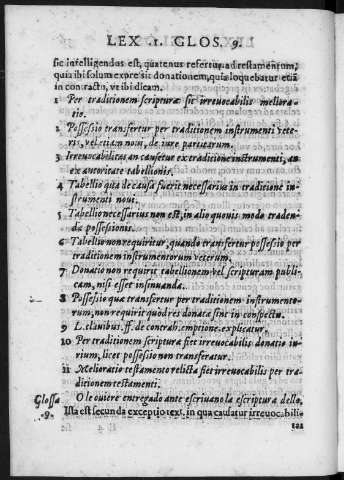 LEX .1. GLOS. 9.
sic intelligendus est, quatenus refertur ad testamentum,
quia ibi solum expressit donationem, quia loquebatur etiã
in contractu, vt ibi dicam.
1 Per traditionem scripturæ fit irreuocabilis meliora-
tio.
2 Possessio transfertur per traditionem instrumenti vete-
ris, vel etiam noui, de iure partitarum.
3 Irreuocabilitas an causetur ex traditione instrumenti, an
ex autoritate tabellionis.
4 Tabellio qua de causa fuerit necessarius in traditione in-
strumenti noui.
5 Tabellio necessarius non est, in alio quouis modo traden-
dæ possessionis.
6 Tabellio nõ requiritur, quando transfertur possessio per
traditionem instrumentorum veterum.
7 Donatio non requirit tabellionem vel scripturam publi-
cam, nisi esset insinuanda.
8 Possessio quæ transfertur per traditionem instrumento-
rum, non requirit quod res donata sint in conspectu.
9 L. clauibus. ff. de contrah. emptione. explicatur.
10 Per traditionem scripturæ fiet irreuocabilis donatio iu-
rium, licet possessio non transferatur.
11 Melioratio testamento relicta fiet irreuocabilis per tra-
ditionem testamenti.
Glossa
.9.
O le ouiere entregado ante escriuano la escriptura dello,
Ista est secunda exceptio text. in qua causatur irreuocabili-